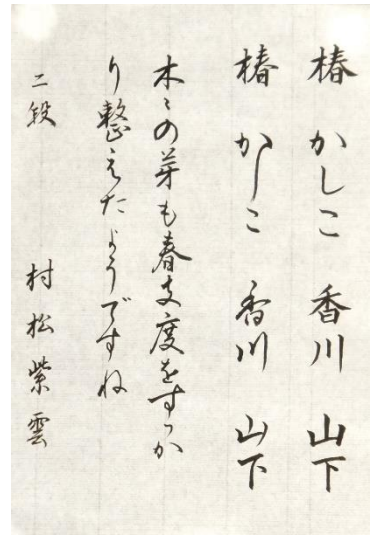 椿 かしこ 香川 山下
椿 かしこ 香川 山下
木々の芽も春支度をすっか
り整えたようですね
二段 村松紫雲